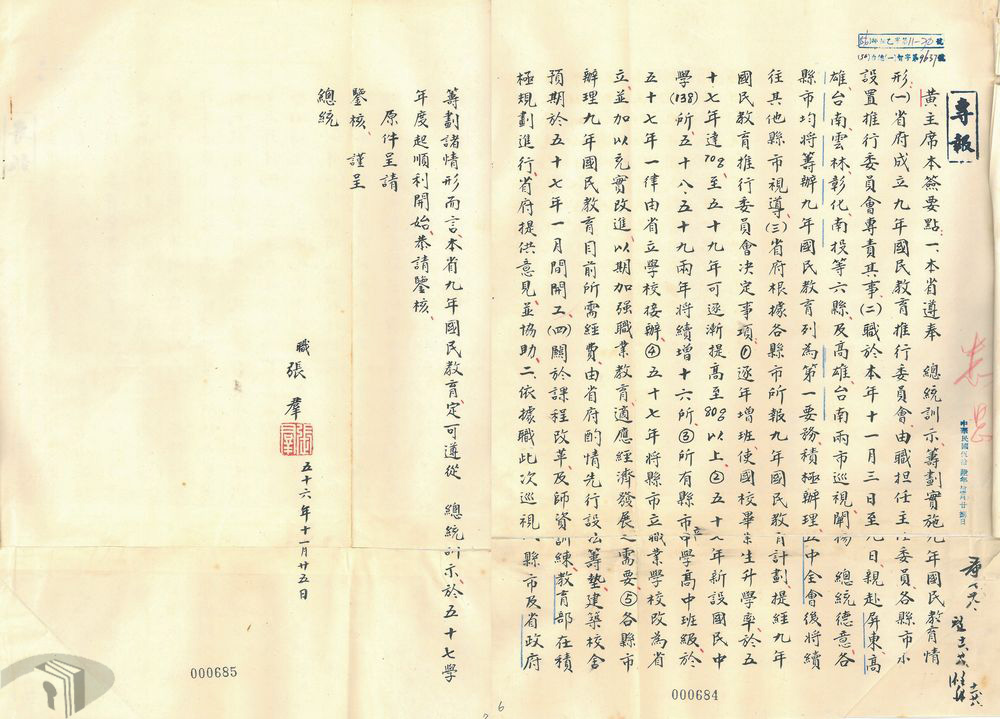 專報
黃主席本簽要點：一、本省遵奉　總統訓示籌劃實施九年國民教育情
形：(一)省府成立九年國民教育推行委員會，由職担任主任委員，各縣市亦
設置推行委員會專責其事。(二)職於本年十一月三日至九日親赴屏東、高
雄、台南、雲林、彰化、南投等六縣及高雄、台南兩市巡視闡揚　總統德意，各
縣市均將籌辦九年國民教育列為第一要務，積極辦理，五中全會後將續
往其他縣市視導。(三)省府根據各縣市所報九年國民教育計劃，提經九年
國民教育推行委員會決定事項：①逐年增班，使國校畢業生升學率於五
十七年達70%，至五十九年可逐漸提高至80%以上。②五十七年新設國民中
學(138)所，五十八、五十九兩年將續增十六所。③所有縣市中學高中班級於
五十七年一律由省立學校接辦。④五十七年將縣市立職業學校改為省
立，並加以充實改進，以期加强職業教育，適應經濟發展之需要。⑤各縣市
辦理九年國民教育目前所需經費，由省府酌情先行設法籌墊，建築校舍
預期於五十七年一月間開工。(四)關於課程改革及師資訓練，教育部在積
極規劃進行，省府提供意見，並協助。二、依據職此次巡視八縣市及省政府
籌劃諸情形而言，本省九年國民教育定可遵從　總統訓示於五十七學
年度起順利開始，恭請鑒核。
原件呈請
鑒核，謹呈
總統
職　張　羣
張羣
五十六年十一月廿五日
000684
000685